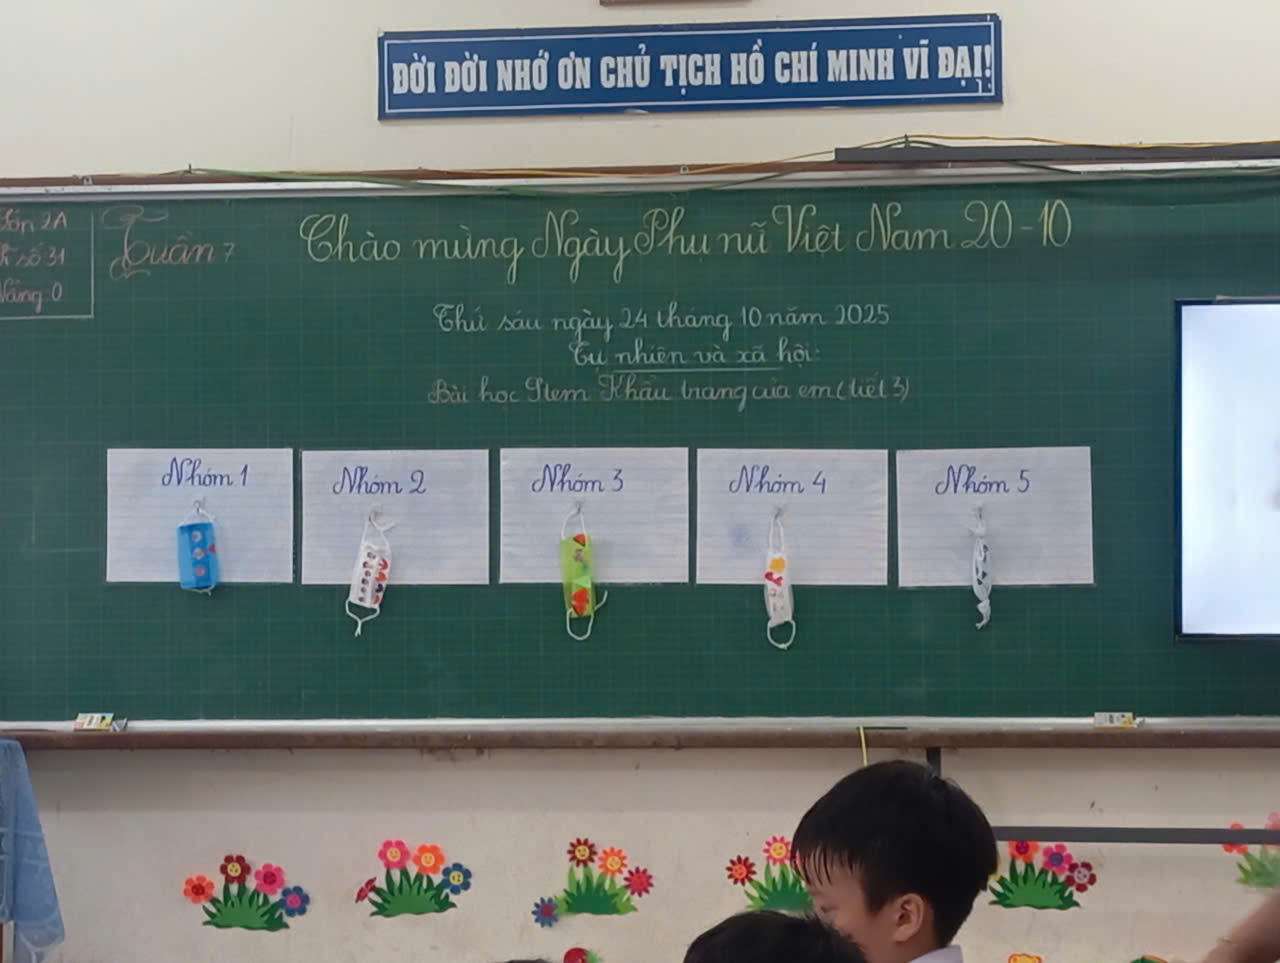 ĐỜI ĐỜI NHỚ ƠN CHỦ TỊCH HỒ CHÍ MINH VĨ ĐẠI!
Lớn 2A
Sĩ số 31
Vắng: 0
Tuần 7
Chào mừng Ngày Phụ nữ Việt Nam 20-10
Thứ sáu ngày 24 tháng 10 năm 2025
Tự nhiên và xã hội:
Bài học Stem Khẩu trang của em (tiết 3)
Nhóm 1
Nhóm 2
Nhóm 3
Nhóm 4
Nhóm 5